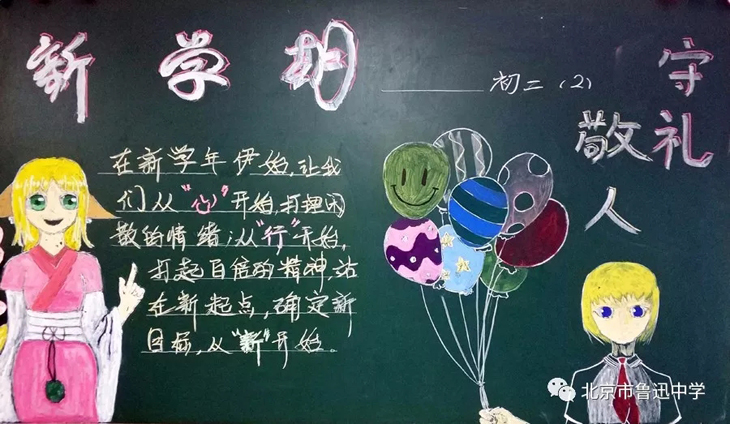 新学期
初二（2）
守礼
敬人
在新学年伊始，让我
们从“心”开始，打理闲
散的情绪；从“行”开始，
打起自信的精神，站
在新起点，确定新
目标，从“新”开始。
北京市鲁迅中学